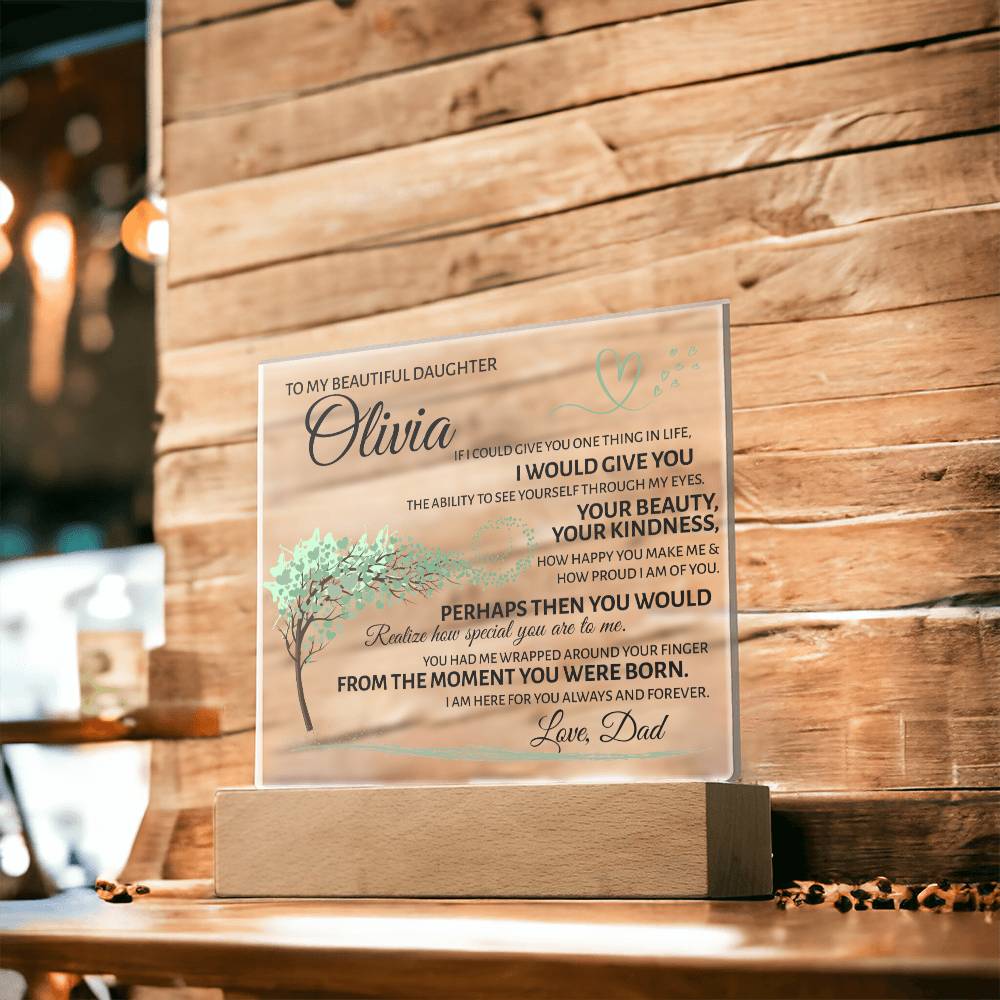 TO MY BEAUTIFUL DAUGHTER
Olivia
IF I COULD GIVE YOU ONE THING IN LIFE,
I WOULD GIVE YOU
THE ABILITY TO SEE YOURSELF THROUGH MY EYES.
YOUR BEAUTY,
YOUR KINDNESS,
HOW HAPPY YOU MAKE ME &
HOW PROUD I AM OF YOU.
PERHAPS THEN YOU WOULD
Realize how special you are to me.
YOU HAD ME WRAPPED AROUND YOUR FINGER
FROM THE MOMENT YOU WERE BORN.
I AM HERE FOR YOU ALWAYS AND FOREVER.
Love, Dad